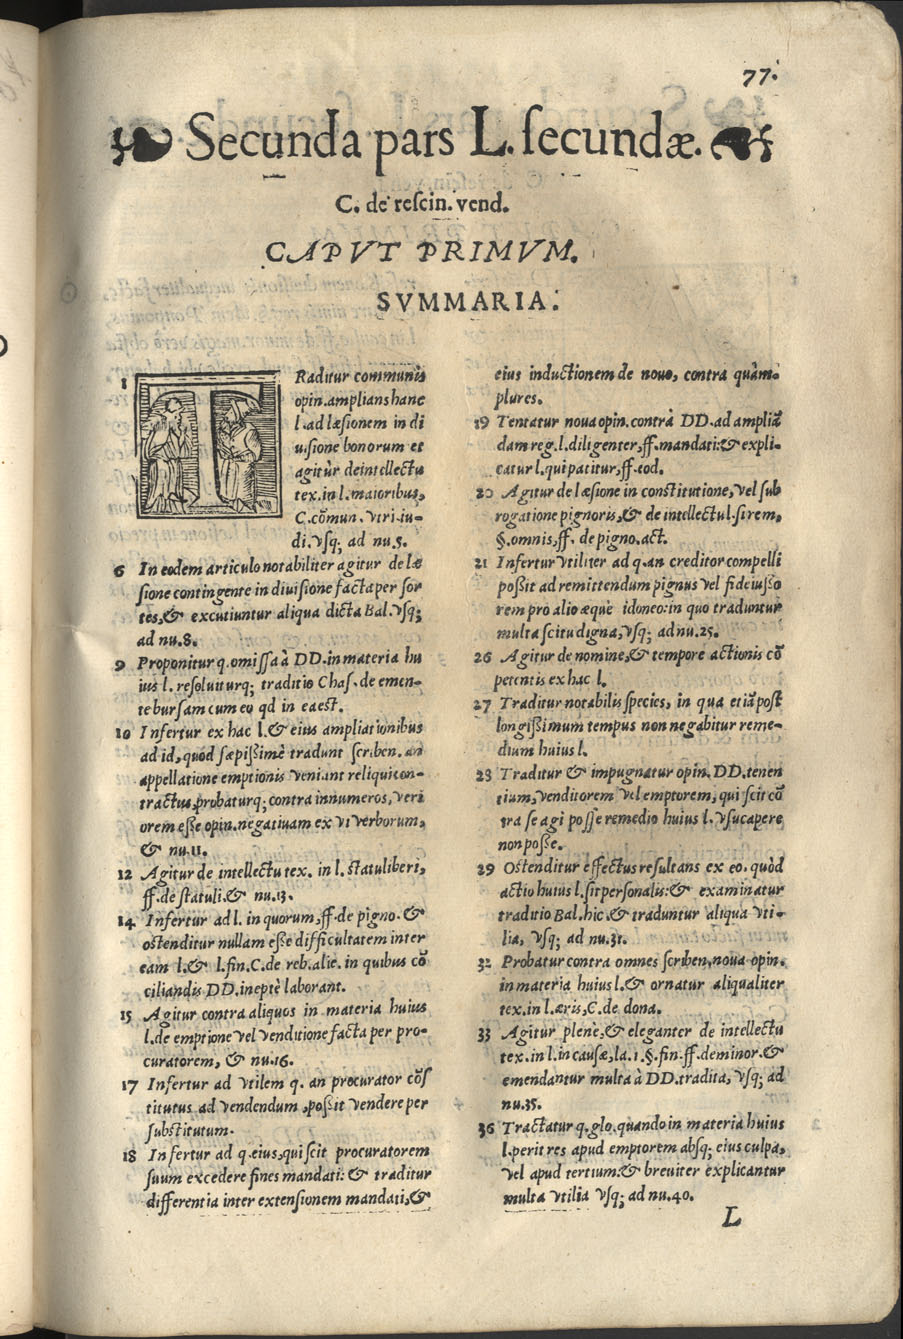 77.
Secunda pars L. secundæ.
C. de rescin. vend.
CAPVT PRIMVM.
SVMMARIA.
1 TRaditur communis
opin. amplians hanc
l. ad læsionem in di
uisione bonorum et
agitùr de intellectu
tex. in l. maioribus,
C. cõmun. vtri. iu-
di. vsq; ad nu. 5.
6 In eodem articulo notabiliter agitur de læ
sione contingente in diuisione facta per sor
tes, & excutiuntur aliqua dicta Bal. vsq;
ad nu. 8.
9 Proponitur q. omissa à DD. in materia hu
ius l. resoluiturq; traditio Chas. de emen-
te bursam cum eo qd in ea est.
10 Infertur ex hac l. & eius ampliationibus
ad id, quód sæpissimè tradunt scriben. an
appellatione emptionis veniant reliqui con-
tractus, probaturq; contra innumeros, veri
orem esse opin. negatiuam ex vi verborum,
& nu. 11.
12 Agitur de intellectu tex. in l. statuliberi,
ff. de statuli. & nu. 13.
14 Infertur ad l. in quorum, ff. de pigno. &
ostenditur nullam esse difficultatem inter
eam l. & l. fin. C. de reb. alie. in quibus cõ
ciliandis DD. ineptè laborant.
15 Agitur contra aliquos in materia huius
l. de emptione vel venditione facta per pro-
curatorem, & nu. 16.
17 Infertur ad vtilem q. an procurator cõs
titutus ad vendendum, possit vendere per
substitutum.
18 Infertur ad q. eius, qui scit procuratorem
suum excedere fines mandati: & traditur
differentia inter extensionem mandati, &
eius inductionem de nouo, contra quàm-
plures.
19 Tentatur noua opin. contrà DD. ad ampliã
dam reg. l. diligenter, ff. mandati: & expli-
catur l. qui patitur, ff. eod.
20 Agitur de læsione in constitutione, vel sub
rogatione pignoris, & de intellectu l. si rem,
§. omnis, ff. de pigno. act.
21 Infertur vtiliter ad q. an creditor compelli
possit ad remittendum pignus vel fideiusso
rem pro alio æquè idoneo: in quo traduntur
multa scitu digna, vsq; ad nu. 25.
26 Agitur de nomine, & tempore actionis cõ
petentis ex hac l.
27 Traditur notabilis species, in qua etiã post
longissimum tempus non negabitur reme-
dium huius l.
28 Traditur & impugnatur opin. DD. tenen
tium, venditorem vel emptorem, qui scit cõ
tra se agi posse remedio huius l. vsucapere
non posse.
29 Ostenditur effectus resultans ex eo. quòd
actio huius l. sit personalis: & examinatur
traditio Bal. hic, & traduntur aliqua vti-
lia, vsq; ad nu. 31.
32 Probatur contra omnes scriben. noua opin.
in materia huius l. & ornatur aliqualiter
tex. in l. æris, C. de dona.
33 Agitur plenè, & eleganter de intellectu
tex. in l. in causæ, la. 1. §. fin. ff. de minor. &
emendantur multa à DD. tradita, vsq; ad
nu. 35.
36 Tractatur q. glo. quando in materia huius
l. perit res apud emptorem absq; eius culpa,
vel apud tertium: & breuiter explicantur
multa vtilia vsq; ad nu. 40.
L